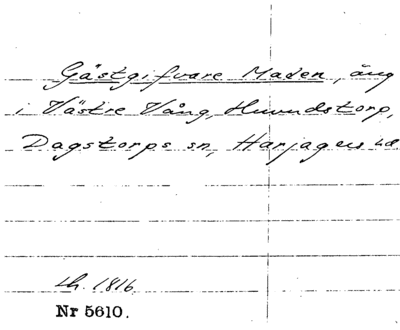 Gästgifvare Maden, äng
i Västre Vång, Huvudstorp,
Dagstorps sn, Harjagers hd
Lh. 1816
Nr 5610.